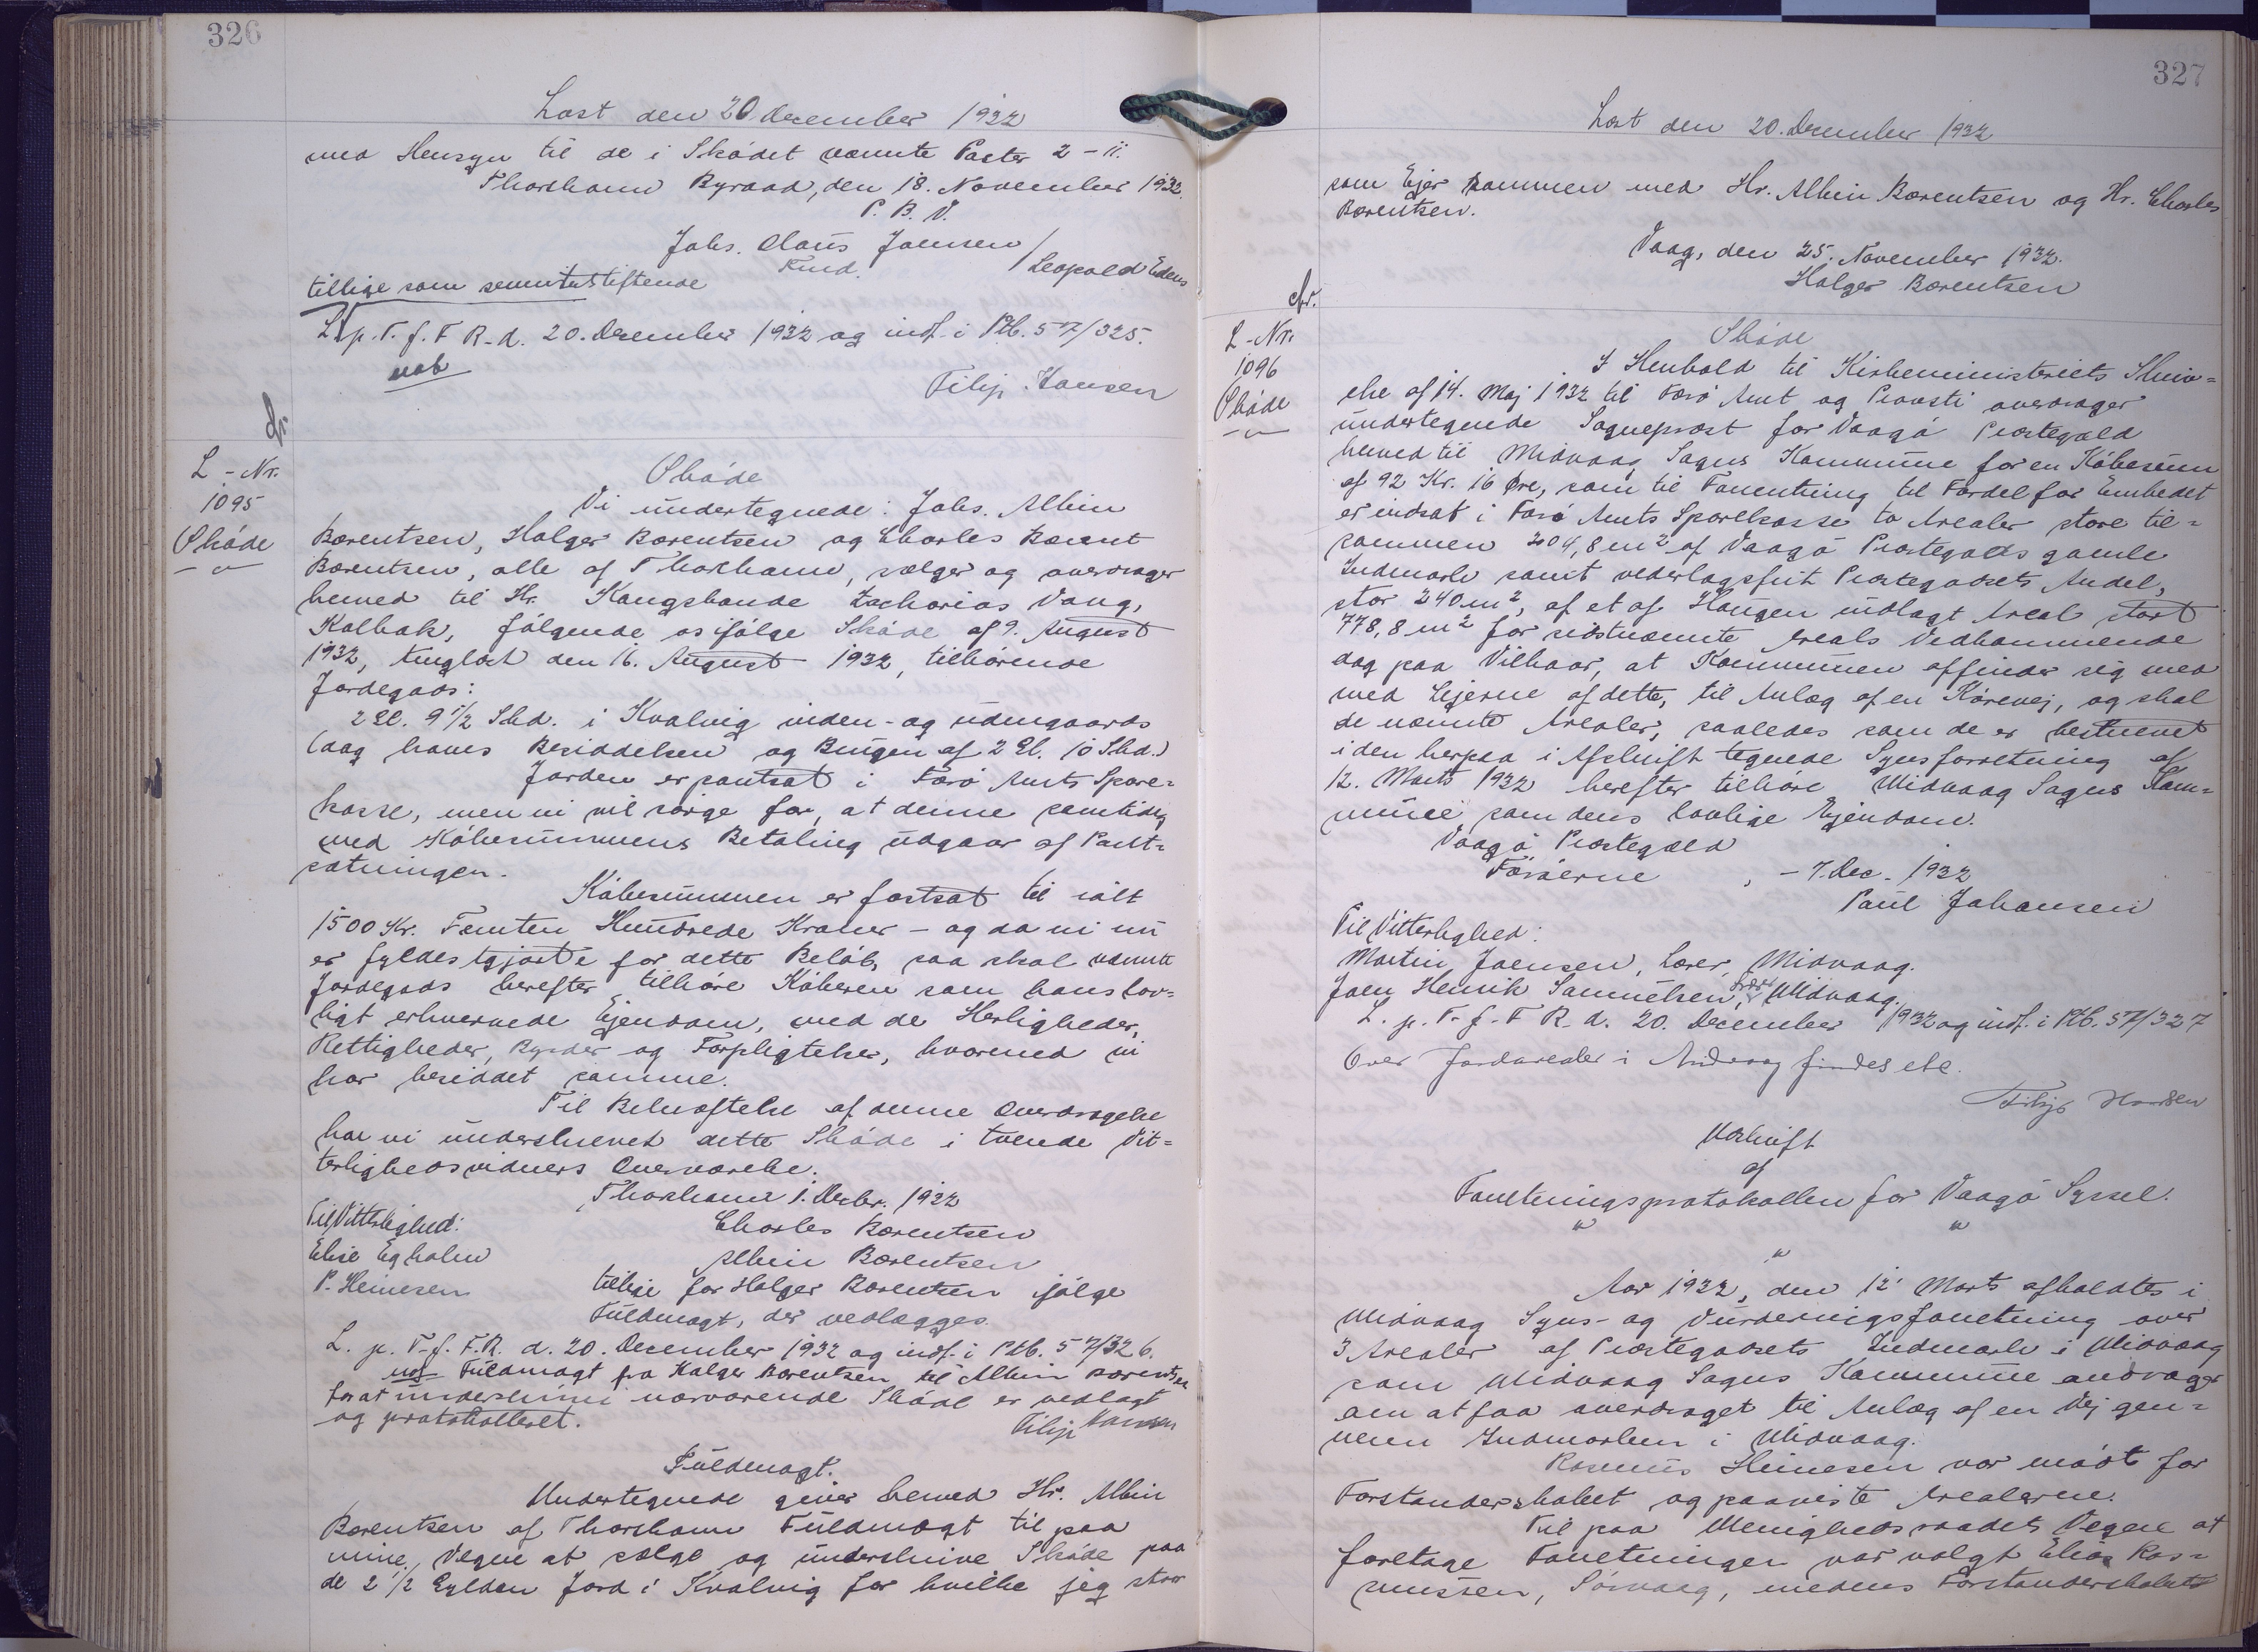 326
Læst den 20. december 1932
med Hensyn til de i Skødet nævnte Poster 2 - 11.
Thorshavn Byraad, den 18. November 1932.
P. B. V.
Johs. Claus Joensen / Leopold Edens
Fmd.
tillige som servitutstiftende
L. p. T. f. F R. d. 20. December 1932 og indf. i Ptb. 57/325.
Filip Hansen
L-Nr.
1095
Skøde
Skøde
Vi undertegnede: Johs. Albin
Bærentsen, Holger Bærentsen og Charles Bærent
Bærentsen, alle af Thorshavn, sælger og overdrager
herved til Hr. Kongsbonde Zacharias Vang,
Kolbak, følgende os ifølge Skøde af 9. August
1932, tinglæst den 16. August 1932, tilhørende
Jordegods:
2 Gl. 9 1/2 Skd. i Kvalvig inden- og udengaards
(dog haves Besiddelsen og Brugen af 2 Gl. 10 Skd.)
Jorden er pantsat i Færø Amts Spare=
kasse, men vi vil sørge for, at denne samtidig
med Købesummens Betaling udgaar af Pant=
sætningen.
Købesummen er fastsat til ialt
1500 Kr. Femten Hundrede Kroner - og da vi nu
er fyldestgjorte for dette Beløb, saa skal nævnte
Jordegods herefter tilhøre Køberen som hans lov=
ligt erhvervede Ejendom, med de Herligheder,
Rettigheder, Byrder og Forpligtelser, hvormed vi
har besiddet samme.
Til Bekræftelse af denne Overdragelse
har vi underskrevet dette Skøde i tvende Vit=
terlighedsvidners Overværelse.
Thorshavn 1. Decbr. 1932
Til Vitterlighed: Charles Bærentsen
Elise Egholm Albin Bærentsen
P. Heinesen tillige for Holger Bærentsen ifølge
Fuldmagt, der vedlægges.
L. p. T. f. F.R. d. 20. December 1932 og indf. i Ptb. 57/326.
Fuldmagt fra Holger Bærentsen til Albin Bærentsen
for at underskrive nærværende Skøde er vedlagt
og protokolleret. Filip Hansen
Fuldmagt.
Undertegnede giver herved Hr. Albin
Bærentsen af Thorshavn Fuldmagt til paa
mine Vegne at sælge og underskrive Skøde paa
de 2 1/2 Gylden Jord i Kvalvig for hvilke jeg staar
327
Læst den 20. December 1932
som Ejer sammen med Hr. Albin Bærentsen og Hr. Charles
Bærentsen.
Vaag, den 25. November 1932.
Holger Bærentsen
L-Nr.
1096
Skøde
Skøde
I Henhold til Kirkeministeriets Skriv=
else af 14. Maj 1932 til Færø Amt og Provsti overdrager
undertegnede Sognepræst for Vaagø Præstegæld
herved til Midvaag Sogns Kommune for en Købesum
af 92 Kr. 16 Øre, som til Forrentning til Fordel for Embedet
er indsat i Færø Amts Sparekasse to Arealer store til=
sammen 204,8 m² af Vaagø Præstegælds gamle
Indmark samt vederlagsfrit Præstegodsets Andel,
stor 240 m², af et af Haugen udlagt Areal stort
778,8 m² for sidstnævnte Areals Vedkommende
dog paa Vilkaar, at Kommunen affinder sig med
med Ejerne af dette, til Anlæg af en Kørevej, og skal
de nævnte Arealer, saaledes som de er beskrevet
i den herpaa i Afskrift tegnede Synsforretning af
12. Marts 1932 herefter tilhøre Midvaag Sogns Kom=
mune som dens lovlige Ejendom.
Vaagø Præstegæld
Færøerne, - 7. Dec. 1932
Paul Johansen
Til Vitterlighed:
Martin Joensen, Lærer, Midvaag.
Joen Henrik Samuelsen, Midvaag.
L. p. T. f. F R. d. 20. December 1932 og indf. i Ptb. 57/327
Over Jordarealer i Midvaag findes ete.
Filip Hansen
Udskrift
af
Forretningsprotokollen for Vaagø Syssel.
" "
"
Aar 1932, den 12' Marts afholdtes i
Midvaag Syns- og Vurderingsforretning over
3 Arealer af Præstegodsets Indmark i Midvaag
som Midvaag Sogns Kommune andrager
om at faa overdraget til Anlæg af en Vej gen=
nem Indmarken i Midvaag.
Rasmus Heinesen var mødt for
Forstanderskabet og paaviste Arealerne.
Til paa Menighedsraadets Vegne at
foretage Forretningen var valgt Elias Ras=
mussen, Sørvaag, medens Forstanderskabets